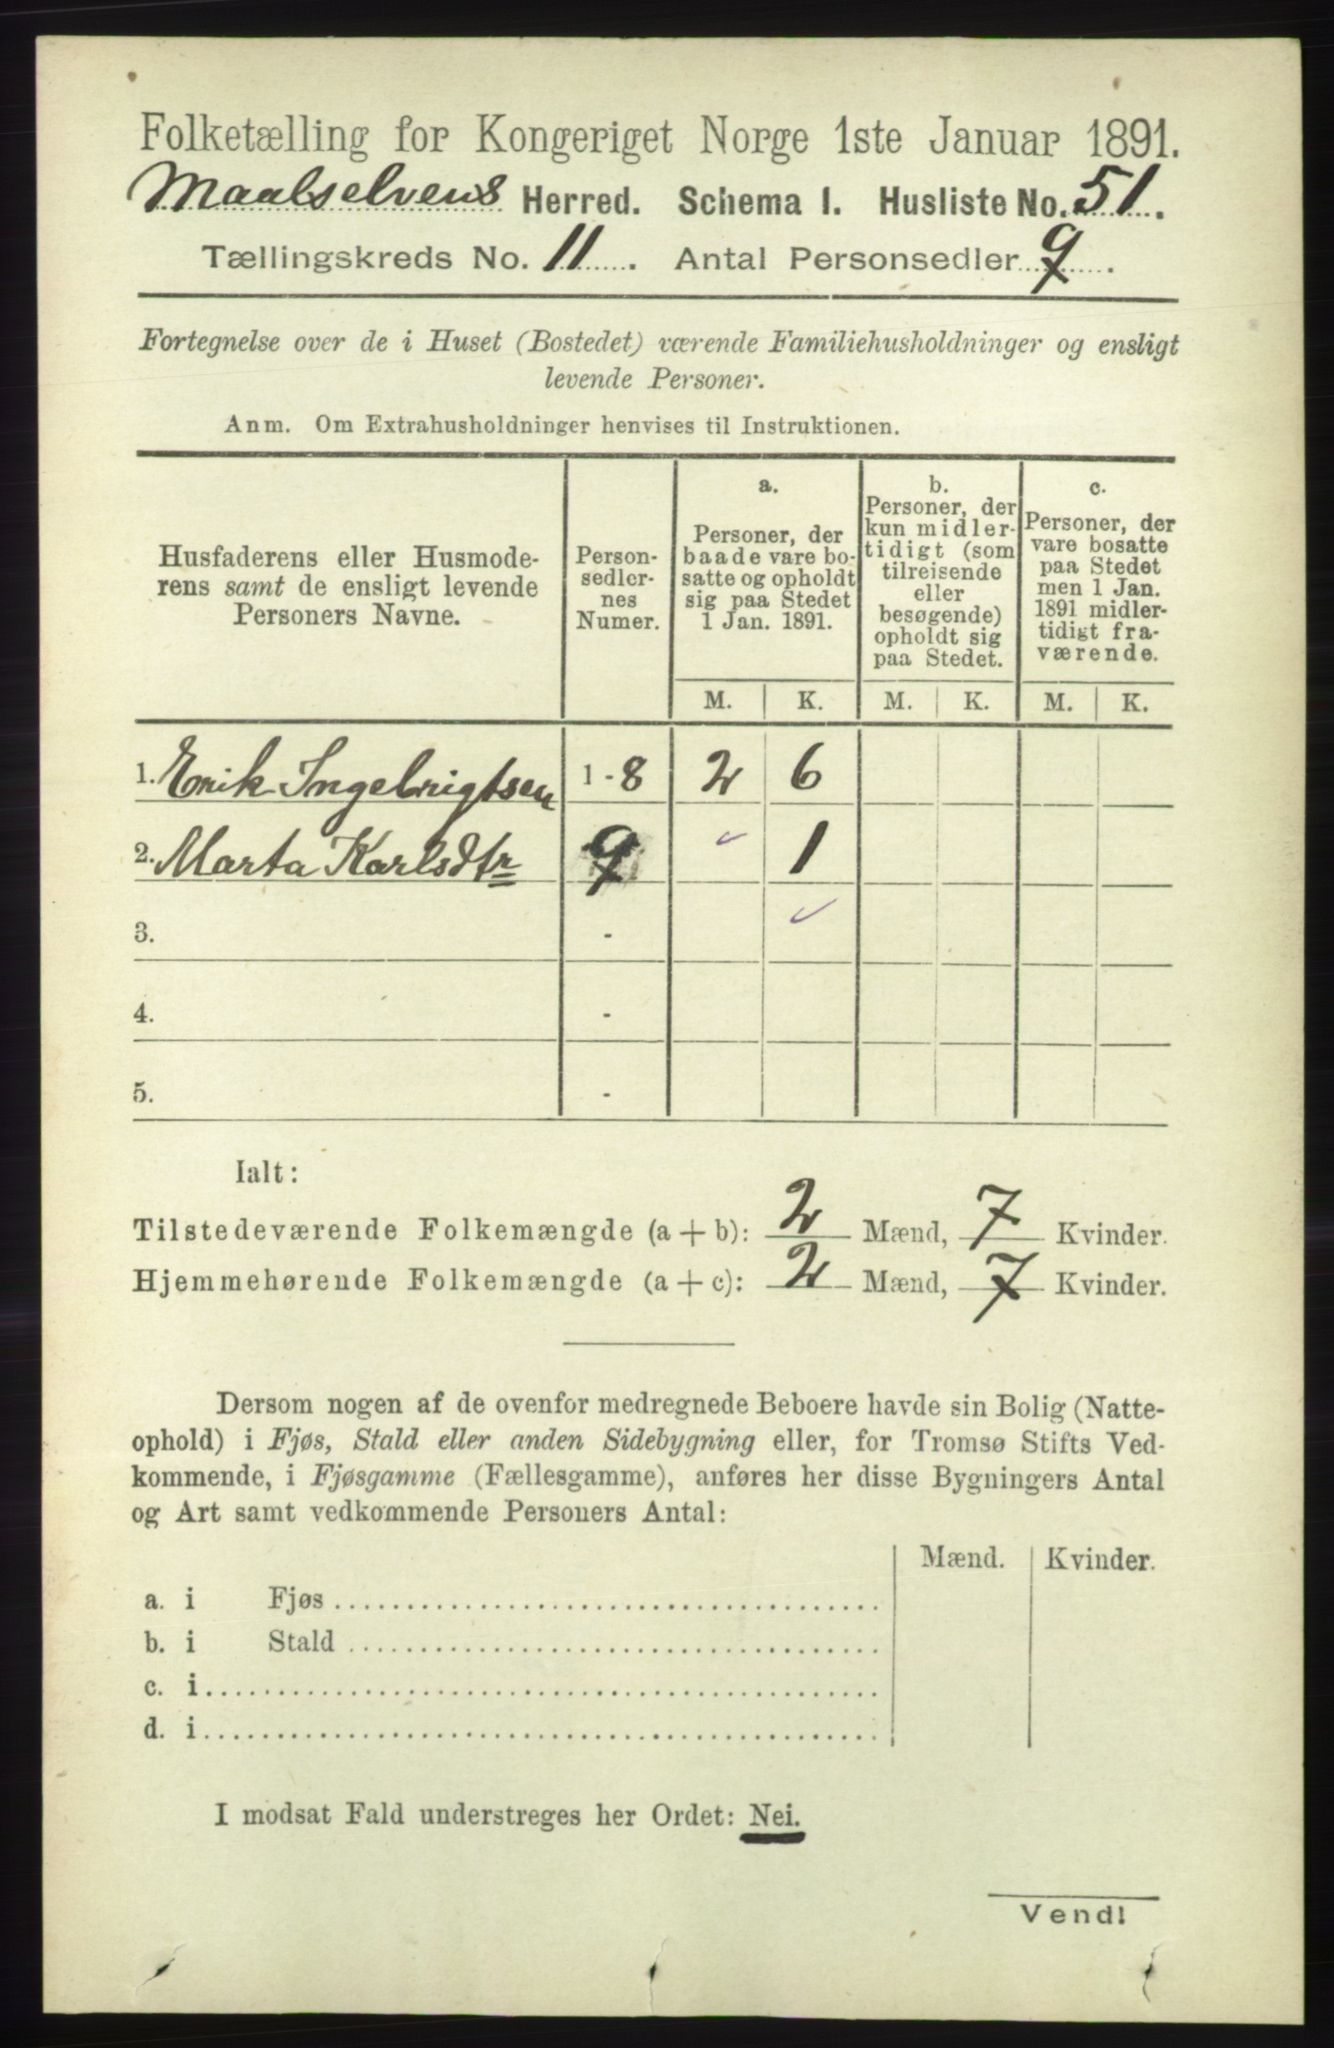 Folketælling for Kongeriget Norge 1ste Januar 1891.
Maalselvens Herred. Schema I. Husliste No. 51.
Tællingskreds No. 11. Antal Personsedler 9.
Fortegnelse over de i Huset (Bostedet) værende Familiehusholdninger og ensligt
levende Personer.
Anm. Om Extrahusholdninger henvises til Instruktionen.
Husfaderens eller Husmode-
rens samt de ensligt levende
Personers Navne.
Person-
sedler-
nes
Numer.
a.
Personer, der
baade vare bo-
satte og opholdt
sig paa Stedet
1 Jan. 1891.
b.
Personer, der
kun midler-
tidigt (som
tilreisende
eller
besøgende)
opholdt sig
paa Stedet.
c.
Personer, der
vare bosatte
paa Stedet
men 1 Jan.
1891 midler-
tidigt fra-
værende.
M. K. M. K. M. K.
1. Erik Ingebrigtsen 1-8 2 6
2. Marta Karlsdtr 9 1
3. -
4. -
5. -
Ialt:
Tilstedeværende Folkemængde (a + b): 2 Mænd, 7 Kvinder.
Hjemmehørende Folkemængde (a + c): 2 Mænd, 7 Kvinder.
Dersom nogen af de ovenfor medregnede Beboere havde sin Bolig (Natte-
ophold) i Fjøs, Stald eller anden Sidebygning eller, for Tromsø Stifts Ved-
kommende, i Fjøsgamme (Fællesgamme), anføres her disse Bygningers Antal
og Art samt vedkommende Personers Antal:
Mænd. Kvinder.
a. i Fjøs
b. i Stald
c. i
d. i
I modsat Fald understreges her Ordet: Nei.
Vend!